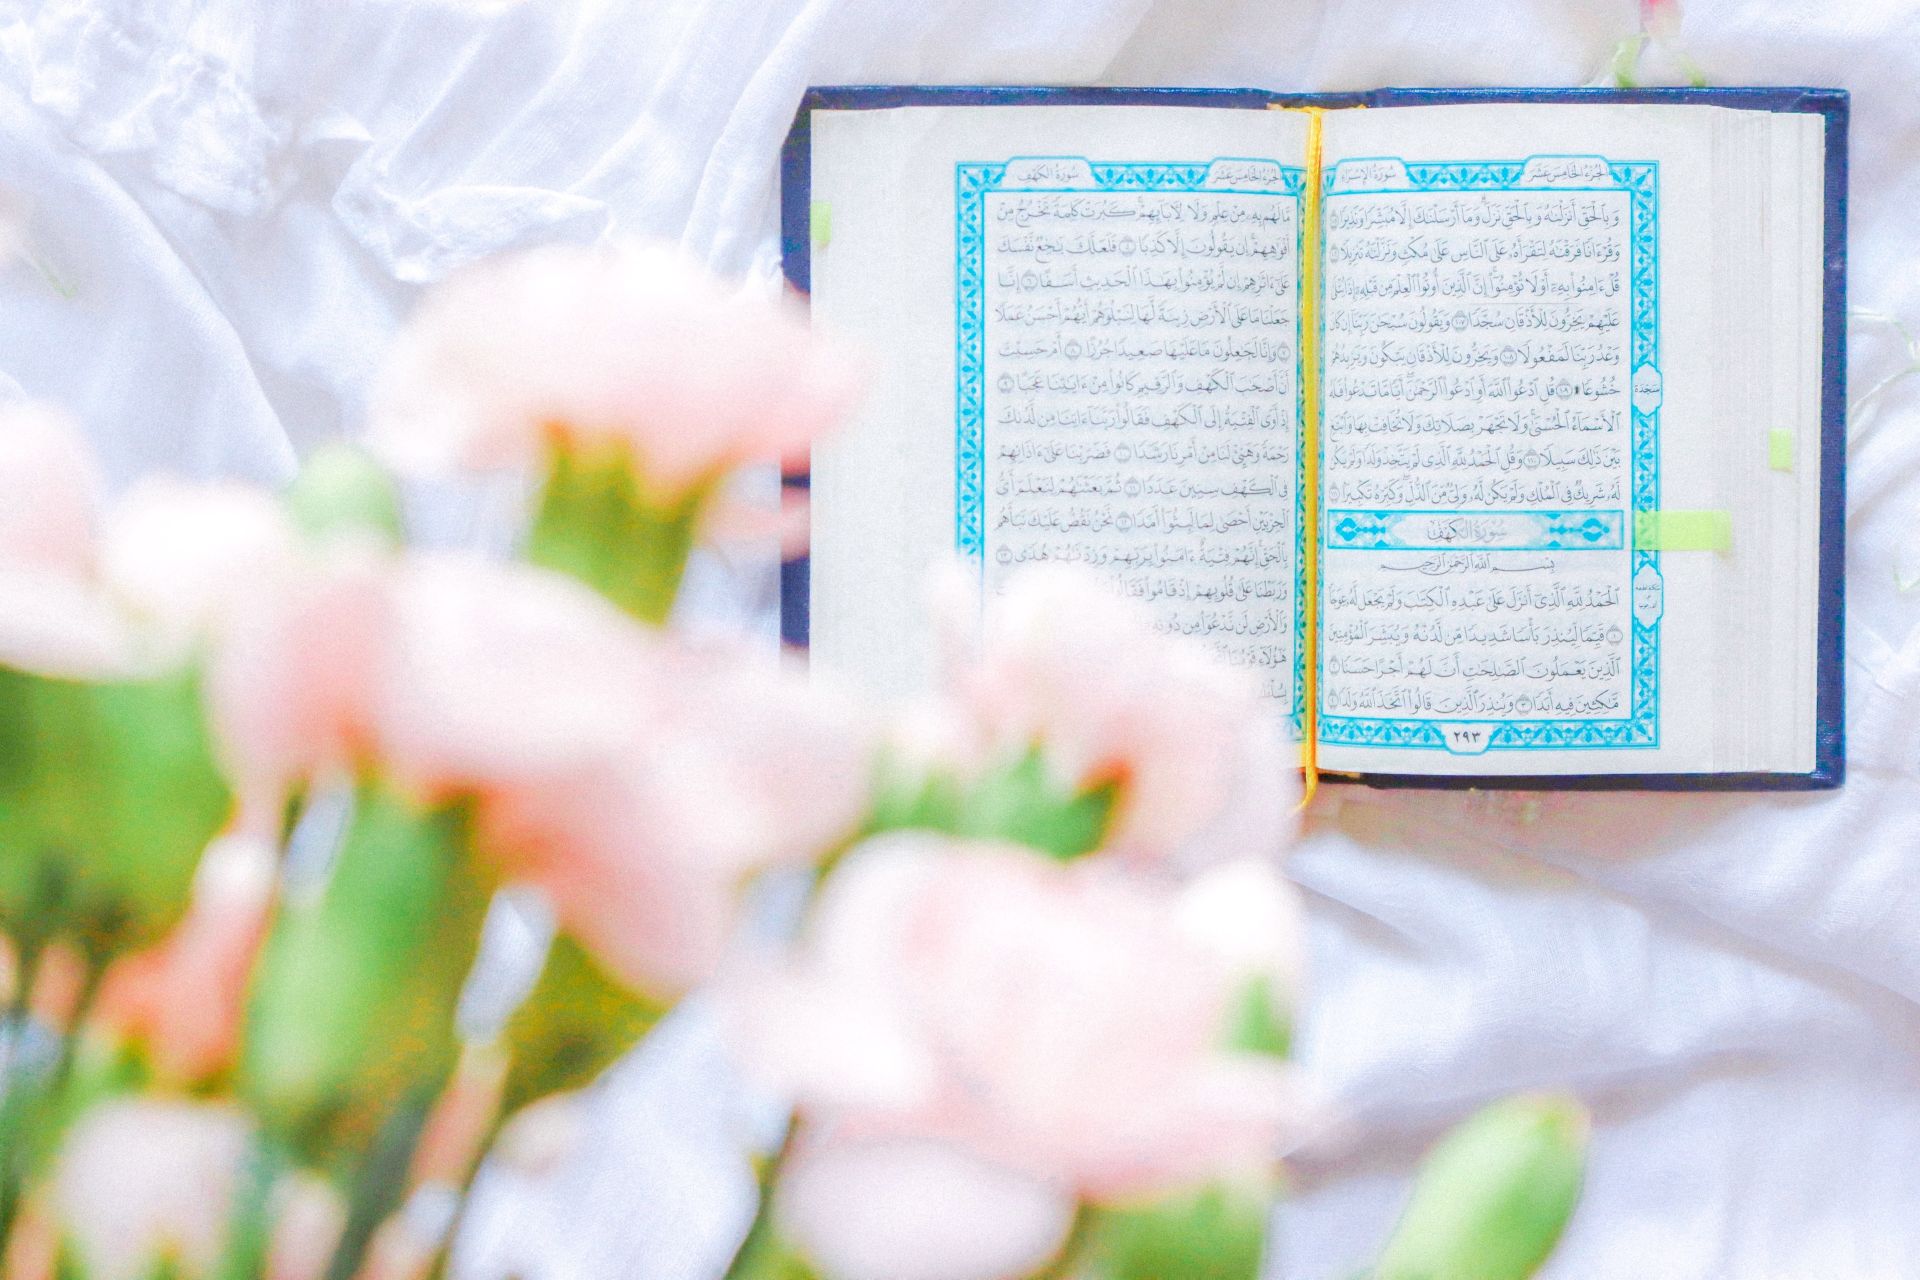 الجُزْءُ الخَامِسَ عَشَرَ سُورَةُ الإِسْرَاءِ
وَبِٱلْحَقِّ أَنزَلْنَٰهُ وَبِٱلْحَقِّ نَزَلَۗ وَمَآ أَرْسَلْنَٰكَ إِلَّا مُبَشِّرًا وَنَذِيرًا ١٠٥
وَقُرْءَانًا فَرَقْنَٰهُ لِتَقْرَأَهُۥ عَلَى ٱلنَّاسِ عَلَىٰ مُكْثٍ وَنَزَّلْنَٰهُ تَنزِيلًا ١٠٦
قُلْ ءَامِنُوا۟ بِهِۦٓ أَوْ لَا تُؤْمِنُوٓا۟ۚ إِنَّ ٱلَّذِينَ أُوتُوا۟ ٱلْعِلْمَ مِن قَبْلِهِۦٓ إِذَا يُتْلَىٰ
عَلَيْهِمْ يَخِرُّونَ لِلْأَذْقَانِ سُجَّدًا ١٠٧ وَيَقُولُونَ سُبْحَٰنَ رَبِّنَآ إِن كَانَ
وَعْدُ رَبِّنَا لَمَفْعُولًا ١٠٨ وَيَخِرُّونَ لِلْأَذْقَانِ يَبْكُونَ وَيَزِيدُهُمْ
خُشُوعًا۩ ١٠٩ قُلِ ٱدْعُوا۟ ٱللَّهَ أَوِ ٱدْعُوا۟ ٱلرَّحْمَٰنَۖ أَيًّا مَّا تَدْعُوا۟ فَلَهُ
سَجْدَة
ٱلْأَسْمَآءُ ٱلْحُسْنَىٰۚ وَلَا تَجْهَرْ بِصَلَاتِكَ وَلَا تُخَافِتْ بِهَا وَٱبْتَغِ
بَيْنَ ذَٰلِكَ سَبِيلًا ١١٠ وَقُلِ ٱلْحَمْدُ لِلَّهِ ٱلَّذِى لَمْ يَتَّخِذْ وَلَدًا وَلَمْ يَكُن
لَّهُۥ شَرِيكٌ فِى ٱلْمُلْكِ وَلَمْ يَكُن لَّهُۥ وَلِىٌّ مِّنَ ٱلذُّلِّۖ وَكَبِّرْهُ تَكْبِيرًۢا ١١١
سُورَةُ الكَهْفِ
بِسْمِ ٱللَّهِ ٱلرَّحْمَٰنِ ٱلرَّحِيمِ
ٱلْحَمْدُ لِلَّهِ ٱلَّذِىٓ أَنزَلَ عَلَىٰ عَبْدِهِ ٱلْكِتَٰبَ وَلَمْ يَجْعَل لَّهُۥ عِوَجَاۜ
١ قَيِّمًا لِّيُنذِرَ بَأْسًا شَدِيدًا مِّن لَّدُنْهُ وَيُبَشِّرَ ٱلْمُؤْمِنِينَ
ٱلَّذِينَ يَعْمَلُونَ ٱلصَّٰلِحَٰتِ أَنَّ لَهُمْ أَجْرًا حَسَنًا ٢
مَّٰكِثِينَ فِيهِ أَبَدًا ٣ وَيُنذِرَ ٱلَّذِينَ قَالُوا۟ ٱتَّخَذَ ٱللَّهُ وَلَدًا ٤
٢٩٣
الجُزْءُ الخَامِسَ عَشَرَ سُورَةُ الكَهْفِ
مَّا لَهُم بِهِۦ مِنْ عِلْمٍ وَلَا لِـَٔابَآئِهِمْۚ كَبُرَتْ كَلِمَةً تَخْرُجُ مِنْ
أَفْوَٰهِهِمْۚ إِن يَقُولُونَ إِلَّا كَذِبًا ٥ فَلَعَلَّكَ بَٰخِعٌ نَّفْسَكَ
عَلَىٰٓ ءَاثَٰرِهِمْ إِن لَّمْ يُؤْمِنُوا۟ بِهَٰذَا ٱلْحَدِيثِ أَسَفًا ٦ إِنَّا
جَعَلْنَا مَا عَلَى ٱلْأَرْضِ زِينَةً لَّهَا لِنَبْلُوَهُمْ أَيُّهُمْ أَحْسَنُ عَمَلًا
٧ وَإِنَّا لَجَٰعِلُونَ مَا عَلَيْهَا صَعِيدًا جُرُزًا ٨ أَمْ حَسِبْتَ
أَنَّ أَصْحَٰبَ ٱلْكَهْفِ وَٱلرَّقِيمِ كَانُوا۟ مِنْ ءَايَٰتِنَا عَجَبًا ٩
إِذْ أَوَى ٱلْفِتْيَةُ إِلَى ٱلْكَهْفِ فَقَالُوا۟ رَبَّنَآ ءَاتِنَا مِن لَّدُنكَ
رَحْمَةً وَهَيِّئْ لَنَا مِنْ أَمْرِنَا رَشَدًا ١٠ فَضَرَبْنَا عَلَىٰٓ ءَاذَانِهِمْ
فِى ٱلْكَهْفِ سِنِينَ عَدَدًا ١١ ثُمَّ بَعَثْنَٰهُمْ لِنَعْلَمَ أَىُّ
ٱلْحِزْبَيْنِ أَحْصَىٰ لِمَا لَبِثُوٓا۟ أَمَدًا ١٢ نَّحْنُ نَقُصُّ عَلَيْكَ نَبَأَهُم
بِٱلْحَقِّۚ إِنَّهُمْ فِتْيَةٌ ءَامَنُوا۟ بِرَبِّهِمْ وَزِدْنَٰهُمْ هُدًى ١٣
وَرَبَطْنَا عَلَىٰ قُلُوبِهِمْ إِذْ قَامُوا۟ فَقَالُوا۟
وَٱلْأَرْضِ لَن نَّدْعُوَا۟ مِن دُونِهِۦٓ
هَٰٓؤُلَآءِ قَوْمُنَا